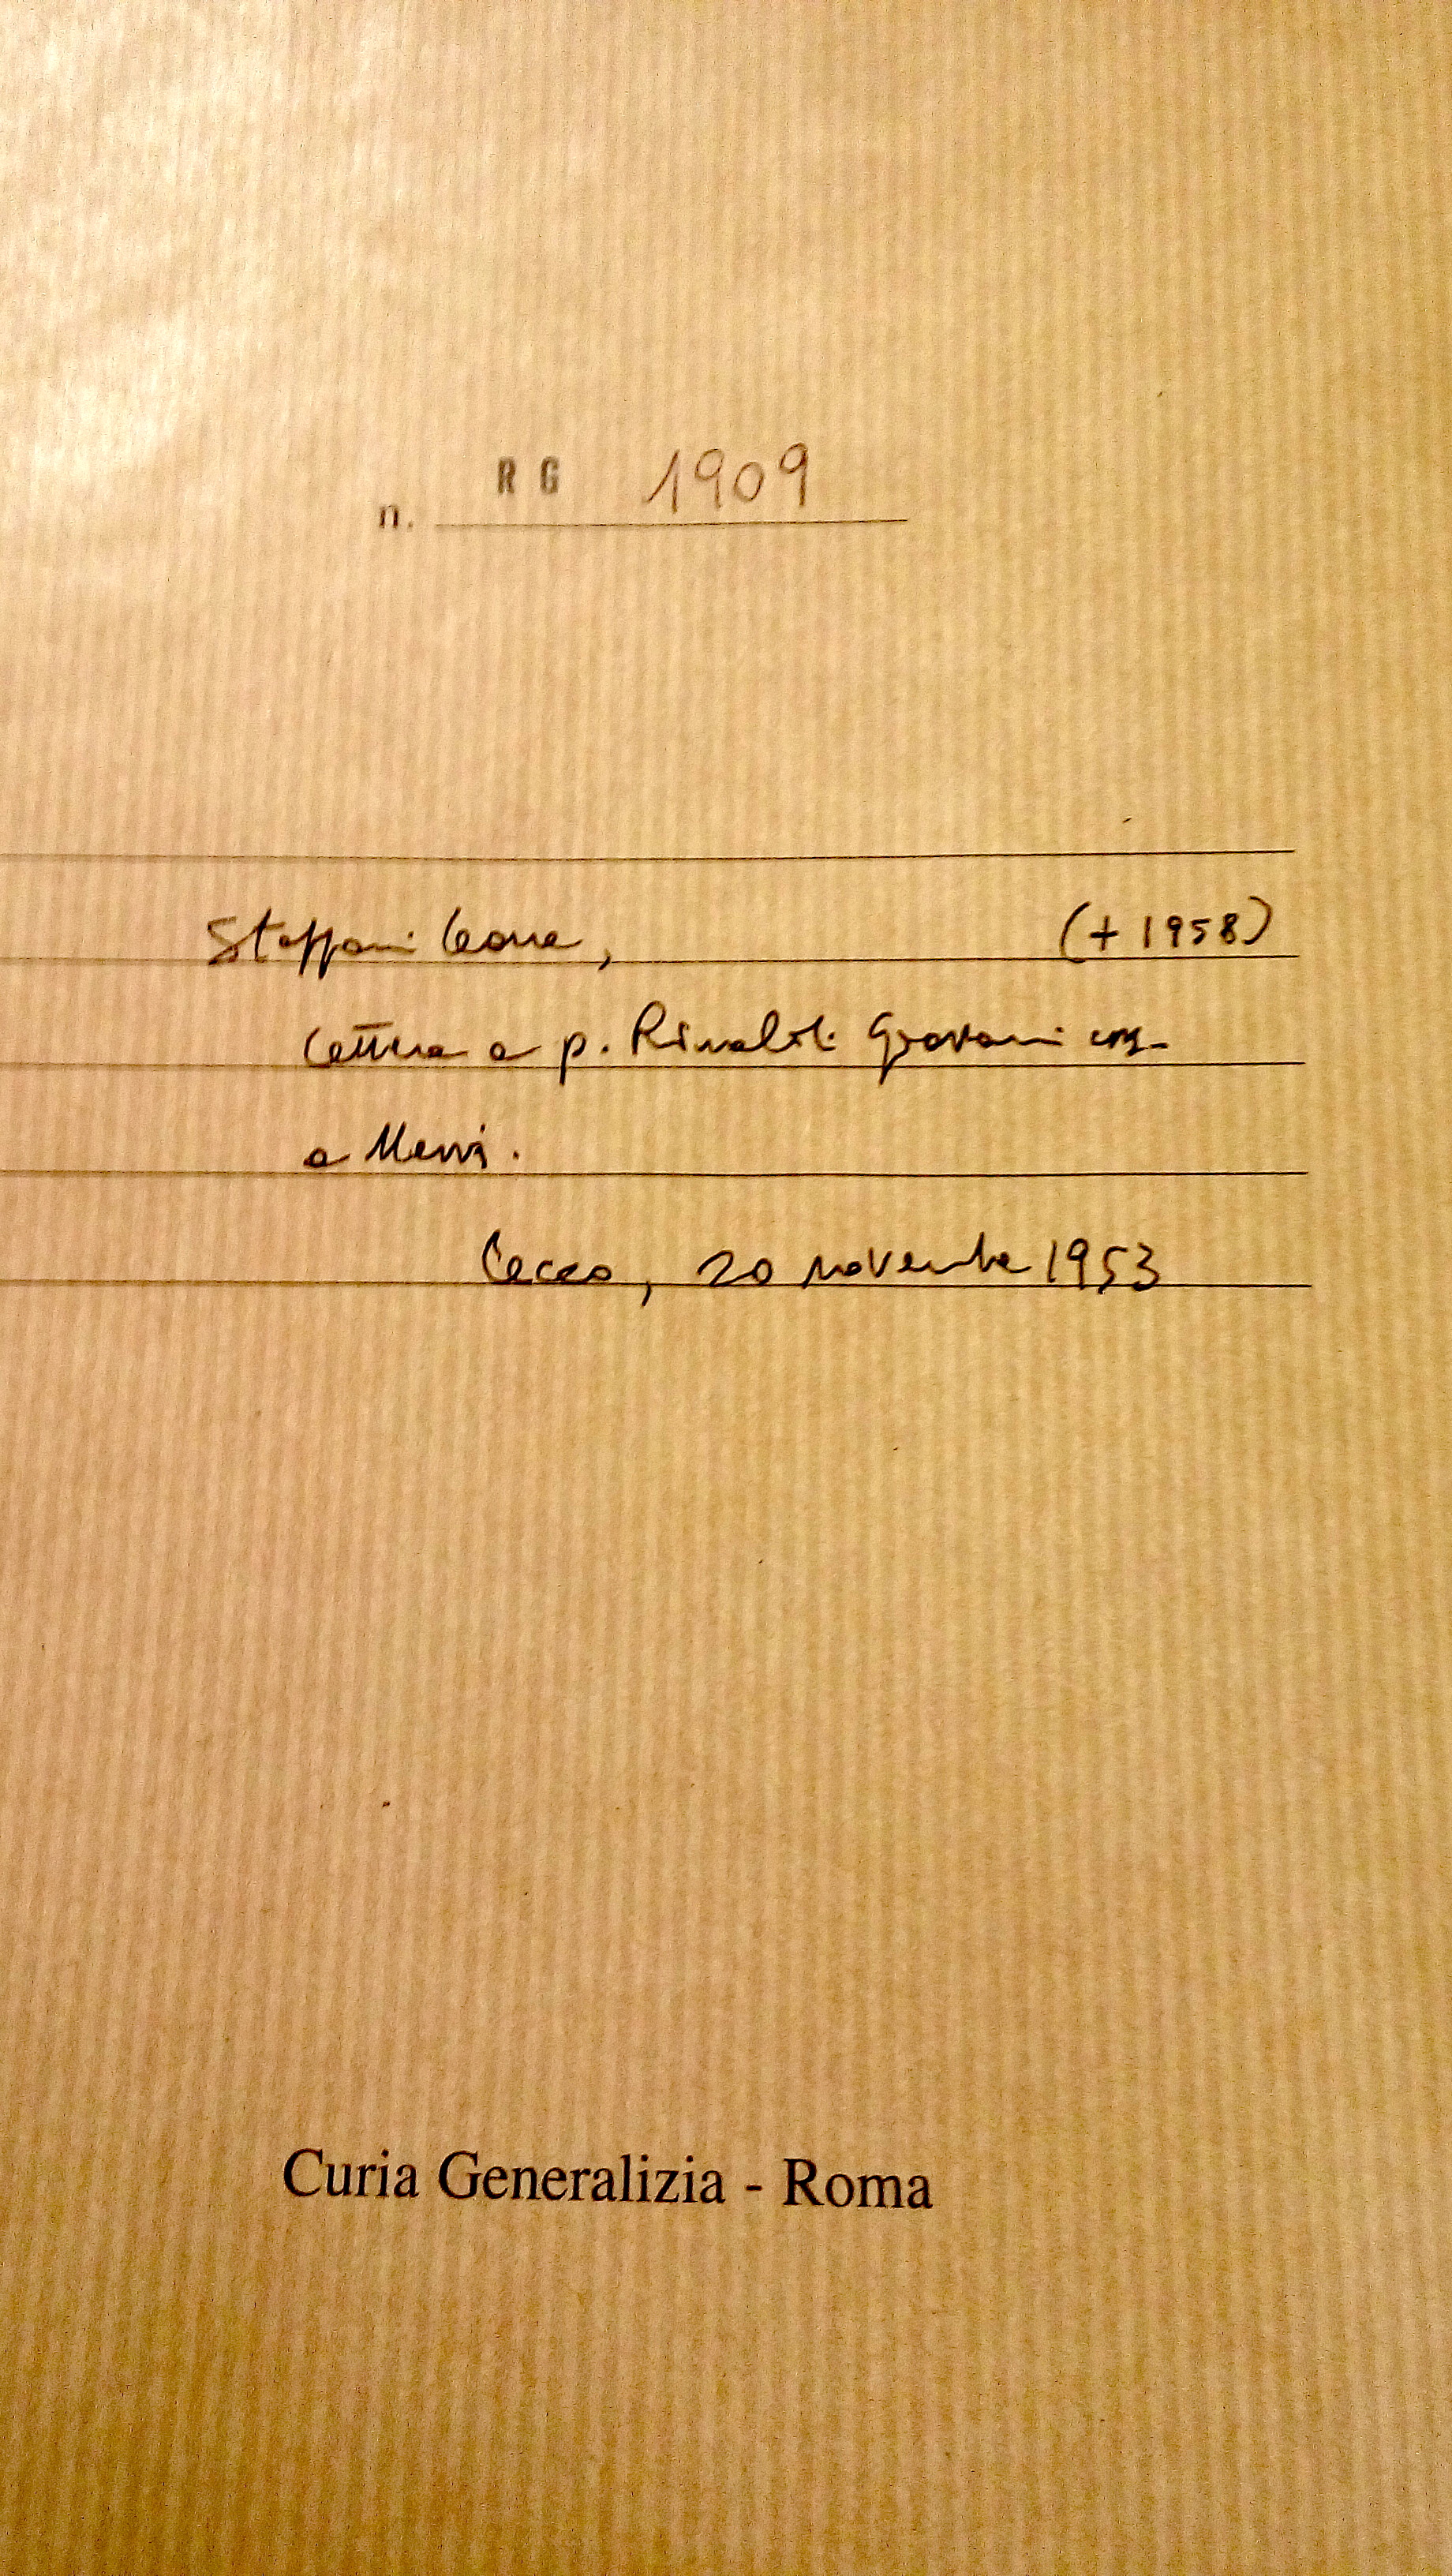 n. RG 1909
Steffani Leone, (+ 1958)
Lettera a p. Rinaldi Giovanni crs.
a Nervi.
Lecco, 20 novembre 1953
Curia Generalizia - Roma